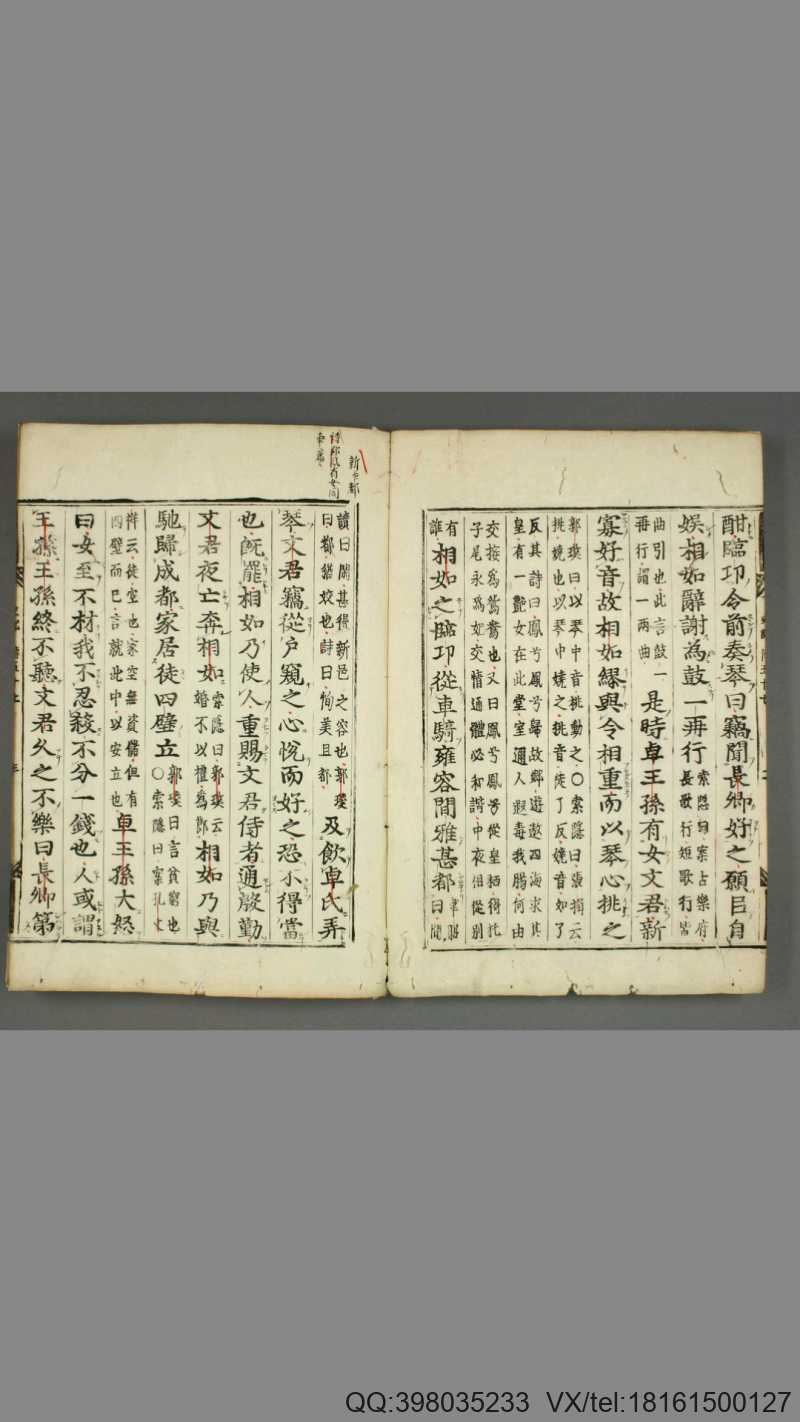 酣臨卭令前奏琴曰竊聞長卿好之願㠯自
娛相如辭謝為鼓一再行索隱曰案古樂府長歌行短歌行皆
曲引也此言鼓一再行謂一兩曲是時卓王孫有女文君新
寡好音故相如繆與令相重而以琴心挑之
郭璞曰以琴中音挑動之〇索隱曰張揖云
挑嬈也以琴中嬈之挑音徒了反嬈音如了
反其詩曰鳳兮鳳兮歸故鄉遊遨四海求其
皇有一艷女在此堂室邇人遐毒我腸何由
交接為鴛鴦也又曰鳳兮鳳兮從皇栖得托
子尾永為妃交情通體必和諧中夜相從別
有誰相如之臨卭從車騎雍容閒雅甚都韋昭曰閒
讀曰閑甚得新邑之容也郭璞
曰都猶姣也詩曰恂美且都及飲卓氏弄
琴文君竊從户窺之心悅而好之恐不得當
也旣罷相如乃使人重賜文君侍者通殷勤
文君夜亡奔相如索隱曰郭璞云婚不以禮為郎相如乃與
馳歸成都家居徒四壁立郭璞曰言貧窮也〇索隱曰案孔文
祥云徒空也家空無資儲但有
四壁而已言就此中以安立也卓王孫大怒
曰女至不材我不忍殺不分一錢也人或謂
王孫王孫終不聽文君久之不樂曰長卿第
QQ:398035233 VX/tel:18161500127